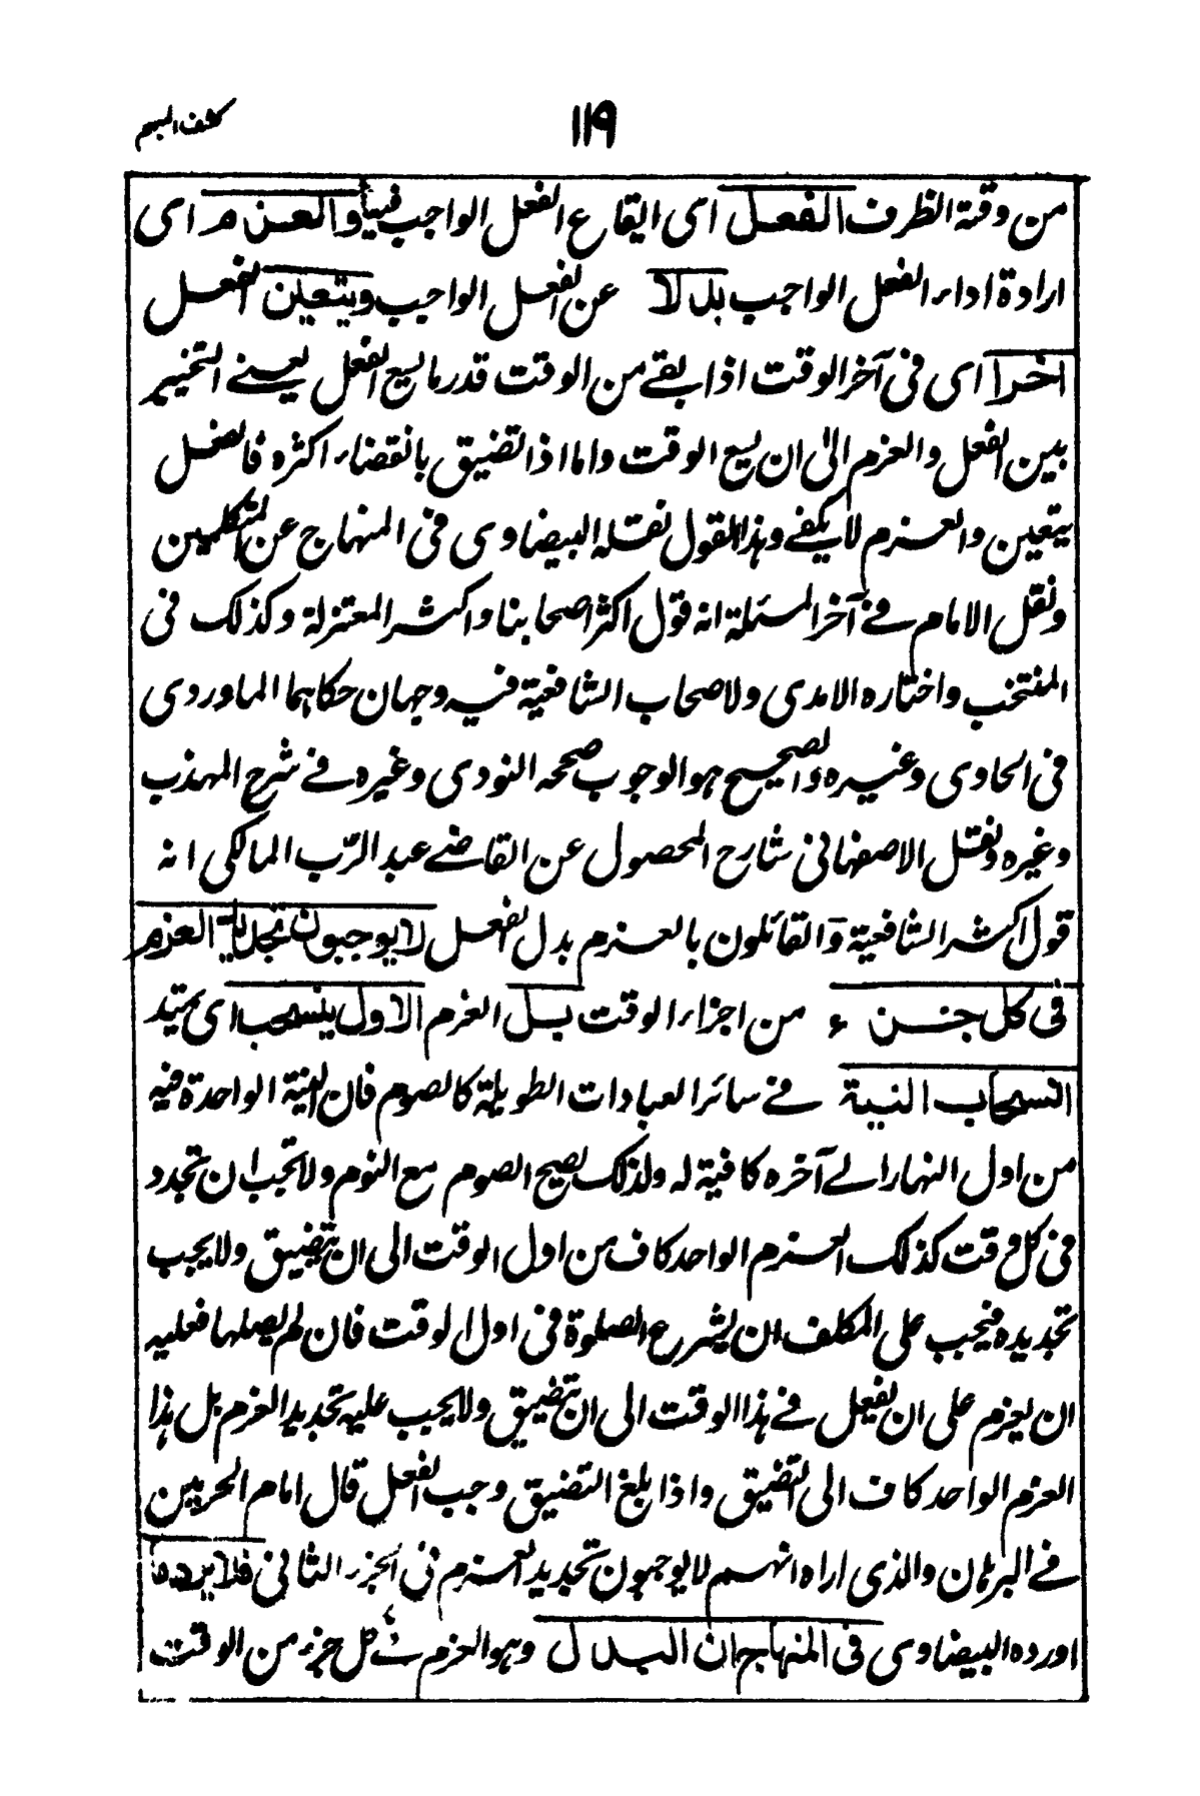 كشف المبهم
١١٩
من وقتة الظرف الفعل اى ايقاع الفعل الواجب فيه او العزم اى
ارادة اداء الفعل الواجب بدلا عن الفعل الواجب ويتعين الفعل
اخرا اى فى آخر الوقت اذا بقے من الوقت قدر ما يسع الفعل يعنے التخيير
بين الفعل والعزم الى ان يسع الوقت واما اذا تضيق بانقضاء اكثره فالفعل
يتعين والعزم لا يكفے وهذا القول نقله البيضاوى فى المنهاج عن المتكلمين
ونقل الامام فے آخر المسئلة انه قول اكثر اصحابنا واكثر المعتزلة وكذلك فى
المنتخب واختاره الامدى ولاصحاب الشافعية فيه وجهان حكاهما الماوردى
فى الحاوى وغيره والصحيح هو الوجوب صححه النودى وغيره فے شرح المهذب
وغيره ونقل الاصفهانى شارح المحصول عن القاضے عبد الرّب المالكى انه
قول اكثر الشافعية وَالقائلون بالعزم بدل الفعل لا يوجبون تجديد العزم
فى كل جزء من اجزاء الوقت بل العزم الاول ينسحب اى يمتد
انسحاب النية فے سائر العبادات الطويلة كالصوم فان النية الواحدة فيه
من اول النهار الے آخره كافية له ولذلك يصح الصوم مع النوم ولا تجب ان تجدد
فى كل وقت كذلك العزم الواحد كاف من اول الوقت الى ان يتضيق ولا يجب
تجديده فيجب على المكلف ان يشرع الصلوة فى اول الوقت فان لم يصلها فعليه
ان يعزم على ان يفعل فے هذا الوقت الى ان يتضيق ولا يجب عليه تجديد العزم بل هذا
العزم الواحد كاف الى التضيق واذا بلغ التضيق وجب الفعل قال امام الحرمين
فے البرهان والذى اراه انهم لا يوجبون تجديد العزم فى الجزء الثانى فلا يرد ما
اورده البيضاوى فى المنهاج ان البدل وهو العزم فے كل جزء من الوقت